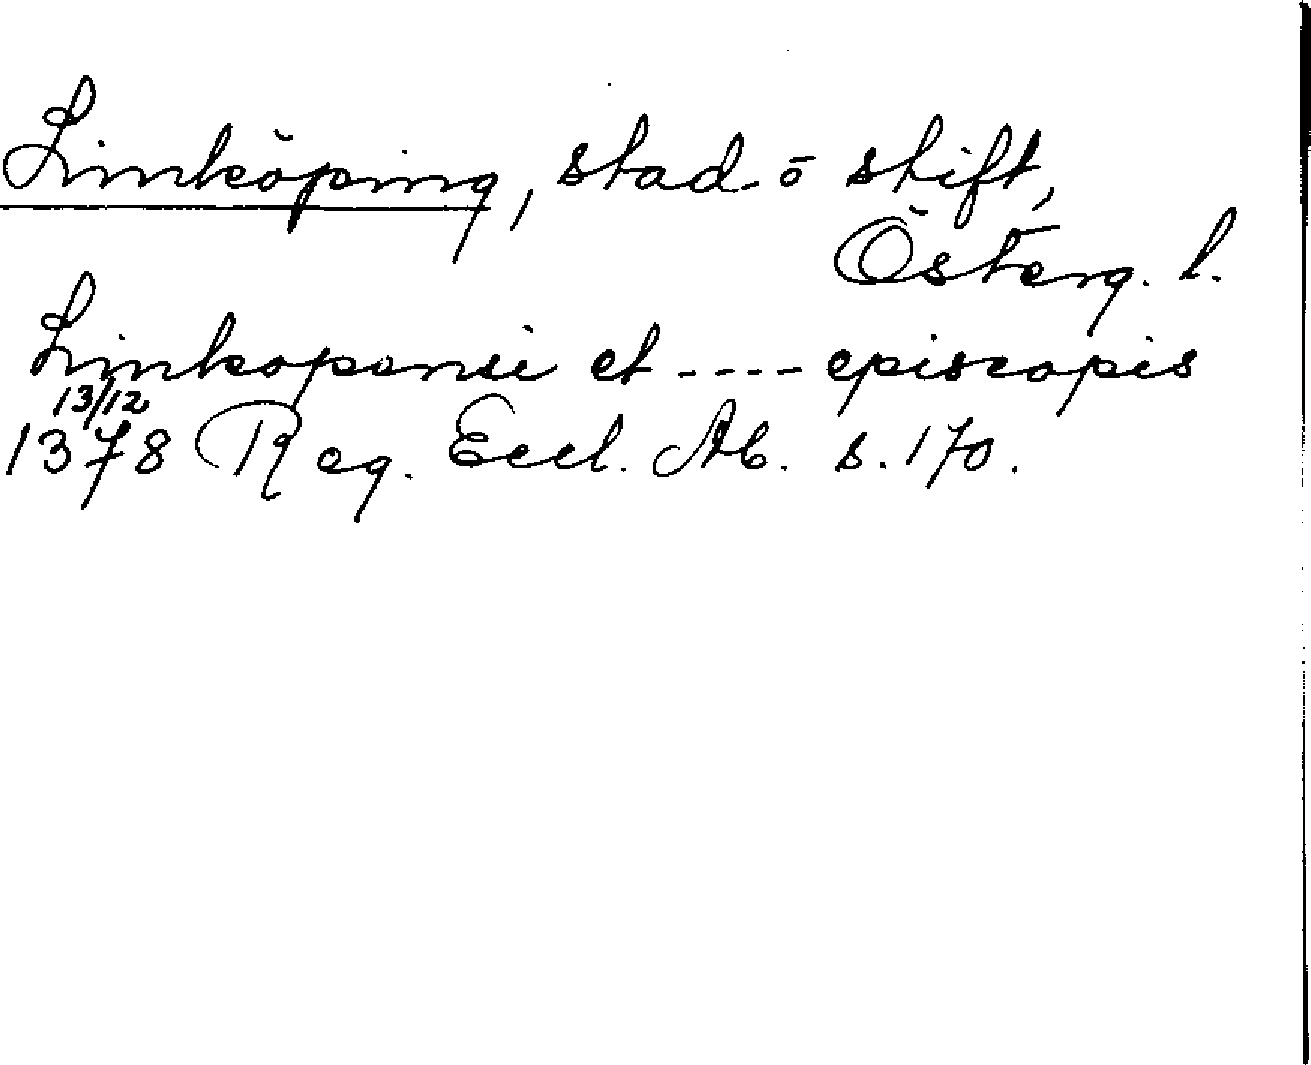 Linköping, stad ō stift,
Österg. l.
Linkopensi et ---- episcopis
13/12
1378 Reg. Eccl. Ab. s. 170.